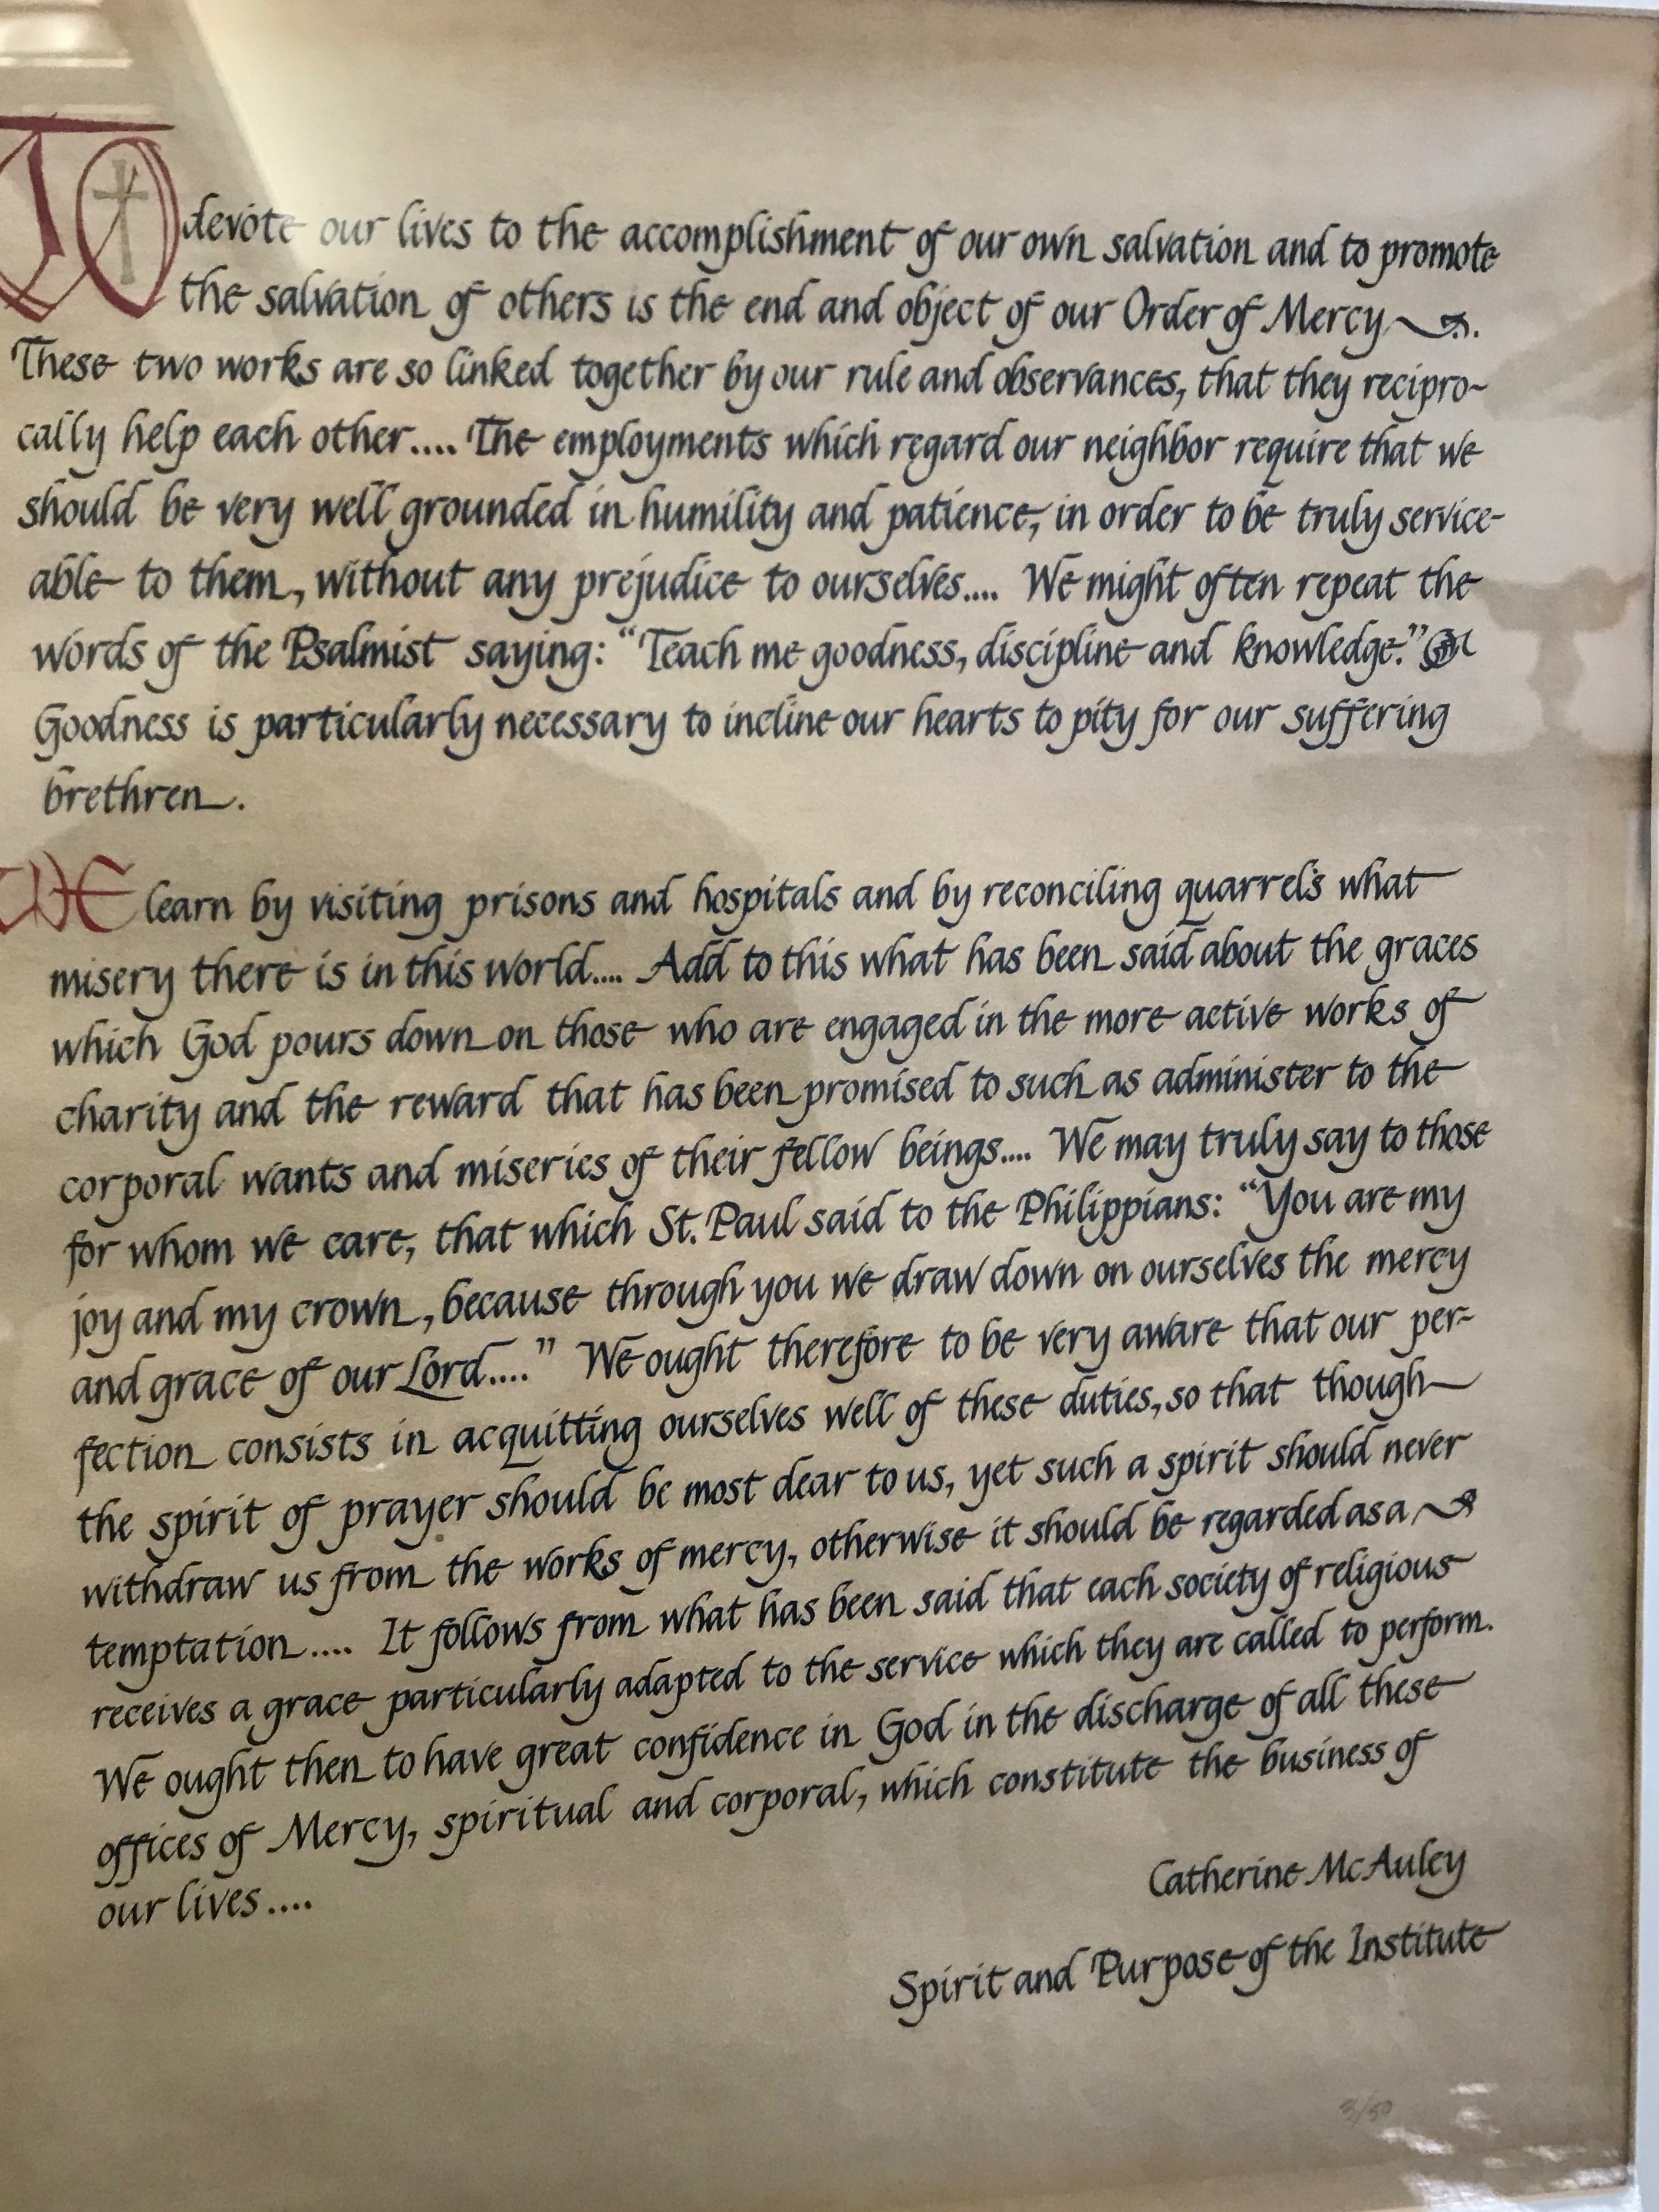 TO devote our lives to the accomplishment of our own salvation and to promote
the salvation of others is the end and object of our Order of Mercy.
These two works are so linked together by our rule and observances, that they recipro-
cally help each other.... The employments which regard our neighbor require that we
should be very well grounded in humility and patience, in order to be truly service-
able to them, without any prejudice to ourselves.... We might often repeat the
words of the Psalmist saying: "Teach me goodness, discipline and knowledge."
Goodness is particularly necessary to incline our hearts to pity for our suffering
brethren.
WE learn by visiting prisons and hospitals and by reconciling quarrels what
misery there is in this world.... Add to this what has been said about the graces
which God pours down on those who are engaged in the more active works of
charity and the reward that has been promised to such as administer to the
corporal wants and miseries of their fellow beings.... We may truly say to those
for whom we care, that which St. Paul said to the Philippians: "You are my
joy and my crown, because through you we draw down on ourselves the mercy
and grace of our Lord...." We ought therefore to be very aware that our per-
fection consists in acquitting ourselves well of these duties, so that though
the spirit of prayer should be most dear to us, yet such a spirit should never
withdraw us from the works of mercy, otherwise it should be regarded as a
temptation.... It follows from what has been said that each society of religious
receives a grace particularly adapted to the service which they are called to perform.
We ought then to have great confidence in God in the discharge of all these
offices of Mercy, spiritual and corporal, which constitute the business of
our lives....
Catherine McAuley
Spirit and Purpose of the Institute
3/50